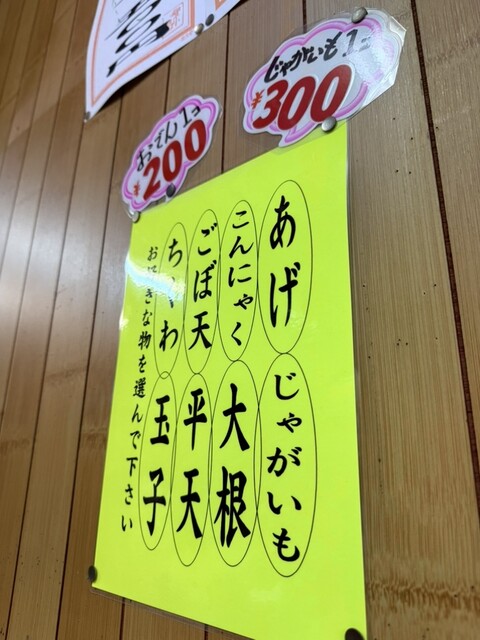 じゃがいも1コ
¥300
おでん1コ
¥200
あげ
じゃがいも
こんにゃく
大根
ごぼ天
平天
ちくわ
玉子
お好きな物を選んで下さい